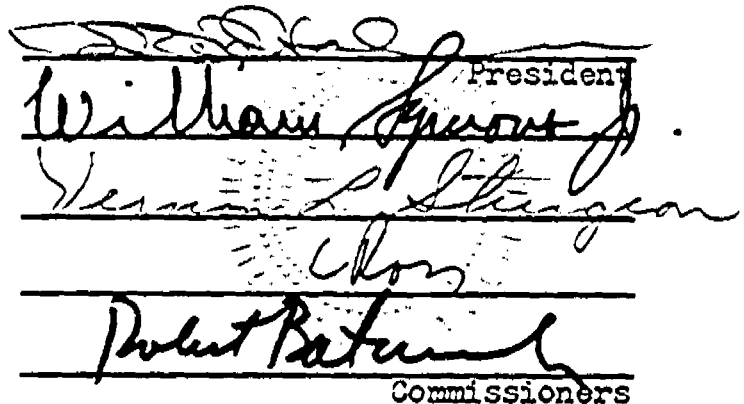 President
William Symons Jr.
Vernon L. Sturgeon
Ross
Robert Batinovich
Commissioners